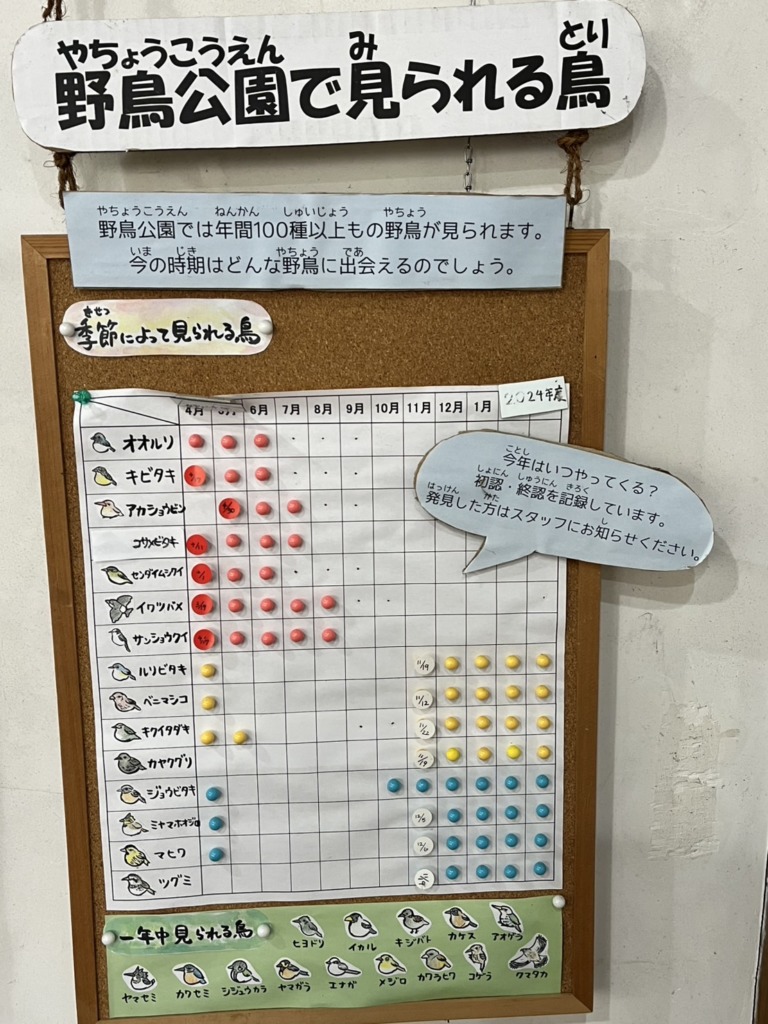 やちょうこうえん み とり
野鳥公園で見られる鳥
やちょうこうえん ねんかん しゅいじょう やちょう
野鳥公園では年間100種以上もの野鳥が見られます。
いま じき やちょう であ
今の時期はどんな野鳥に出会えるのでしょう。
きせつ
季節によって見られる鳥
4月 5月 6月 7月 8月 9月 10月 11月 12月 1月
2024年度
ことし
今年はいつやってくる?
しょにん しゅうにん きろく
初認・終認を記録しています。
はっけん かた し
発見した方はスタッフにお知らせください。
オオルリ
キビタキ
アカショウビン
コサメビタキ
センダイムシクイ
イワツバメ
サンショウクイ
ルリビタキ 11/19
ベニマシコ 11/12
キクイタダキ
カヤクグリ
ジョウビタキ
ミヤマホオジロ
マヒワ
ツグミ
一年中見られる鳥
ヒヨドリ イカル キジバト カケス アオゲラ
ヤマセミ カワセミ シジュウカラ ヤマガラ エナガ メジロ カワラヒワ コゲラ クマタカ